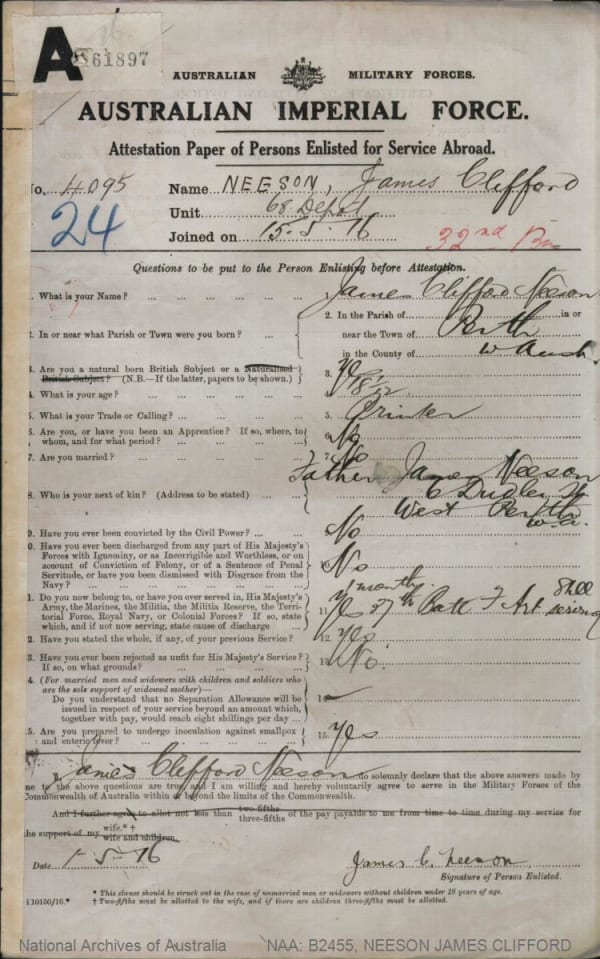 A
61897
AUSTRALIAN MILITARY FORCES.
AUSTRALIAN IMPERIAL FORCE.
Attestation Paper of Persons Enlisted for Service Abroad.
No. 4095 Name NEESON, James Clifford
24 Unit 68 Depot
Joined on 15.5.16 32nd Bn
Questions to be put to the Person Enlisting before Attestation.
1. What is your Name? ... James Clifford Neeson
2. In or near what Parish or Town were you born? ... 2. In the Parish of in or
near the Town of Perth
in the County of W Aust.
3. Are you a natural born British Subject or a Naturalised
British Subject? (N.B.—If the latter, papers to be shown.) 3.
4. What is your age? ... 18 1/12
5. What is your Trade or Calling? ... 5. Printer
6. Are you, or have you been an Apprentice? If so, where, to
whom, and for what period? ... No
7. Are you married? ... 7. No
Father James Neeson
8. Who is your next of kin? (Address to be stated) ... 6 Dudley St
West Perth
W.A.
9. Have you ever been convicted by the Civil Power? ... No
10. Have you ever been discharged from any part of His Majesty's
Forces with Ignominy, or as Incorrigible and Worthless, or on
account of Conviction of Felony, or of a Sentence of Penal
Servitude, or have you been dismissed with Disgrace from the
Navy? ... No
11. Do you now belong to, or have you ever served in, His Majesty's
Army, the Marines, the Militia, the Militia Reserve, the Terri-
torial Force, Royal Navy, or Colonial Forces? If so, state
which, and if not now serving, state cause of discharge 11 Yes months 37th Batt F Art Still serving
12. Have you stated the whole, if any, of your previous Service? 12. Yes
13. Have you ever been rejected as unfit for His Majesty's Service?
If so, on what grounds? ... No
14. (For married men and widowers with children and soldiers who
are the sole support of widowed mother)—
Do you understand that no Separation Allowance will be
issued in respect of your service beyond an amount which,
together with pay, would reach eight shillings per day ...
15. Are you prepared to undergo inoculation against smallpox
and enteric fever? ... 15. Yes
I, James Clifford Neeson do solemnly declare that the above answers made by
me to the above questions are true, and I am willing and hereby voluntarily agree to serve in the Military Forces of the
Commonwealth of Australia within or beyond the limits of the Commonwealth.
And I further agree to allot not less than two-fifths three-fifths of the pay payable to me from time to time during my service for
the support of my wife.* † wife and children.
Date 1-5-16 James C. Neeson
Signature of Person Enlisted.
* This clause should be struck out in the case of unmarried men or widowers without children under 18 years of age.
† Two-fifths must be allotted to the wife, and if there are children three-fifths must be allotted.
National Archives of Australia NAA: B2455, NEESON JAMES CLIFFORD